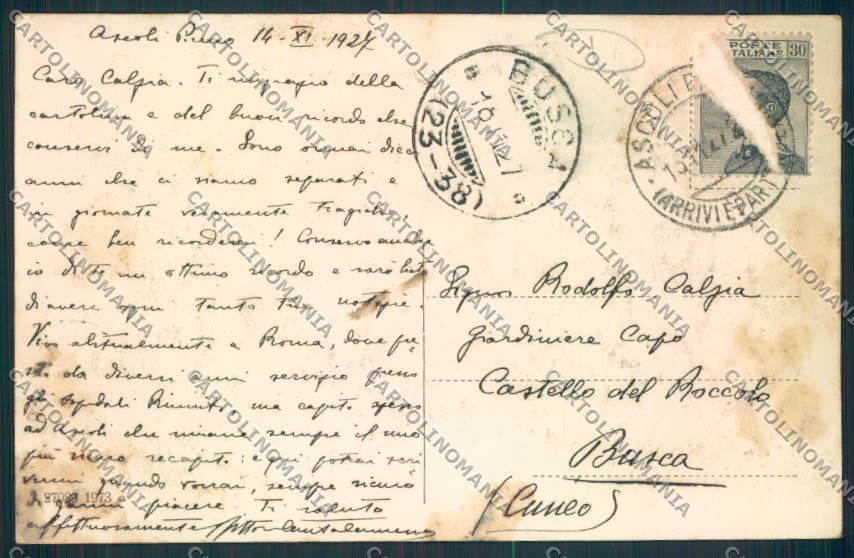 Ascoli Piceno 14-XI-1927
Caro Calzia. Ti ringrazio della
cartolina e del buon ricordo che
conservi di me. Sono ormai dieci
anni che ci siamo separati e
in giornate veramente tragiche,
come ben ricorderai! Conservo anche
io di te un ottimo ricordo e sarò lieto
di avere ogni tanto tue notizie.
Vivo abitualmente a Roma, dove pre
sto da diversi anni servizio presso
gli Ospedali Riuniti, ma capito spesso
ad Ascoli che rimane sempre il mio
più sicuro recapito: e qui potrai scri
vermi quando vorrai, sempre sicuro
di farmi piacere. Ti saluto
affettuosamente
27023 1973
BUSCA
(23-38)
POSTE
ITALIANE 30
ASCOLI
(ARRIVI E PART
Signor Rodolfo Calzia
Giardiniere Capo
Castello del Roccolo
Busca
(Cuneo)
CARTOLINOMANIA